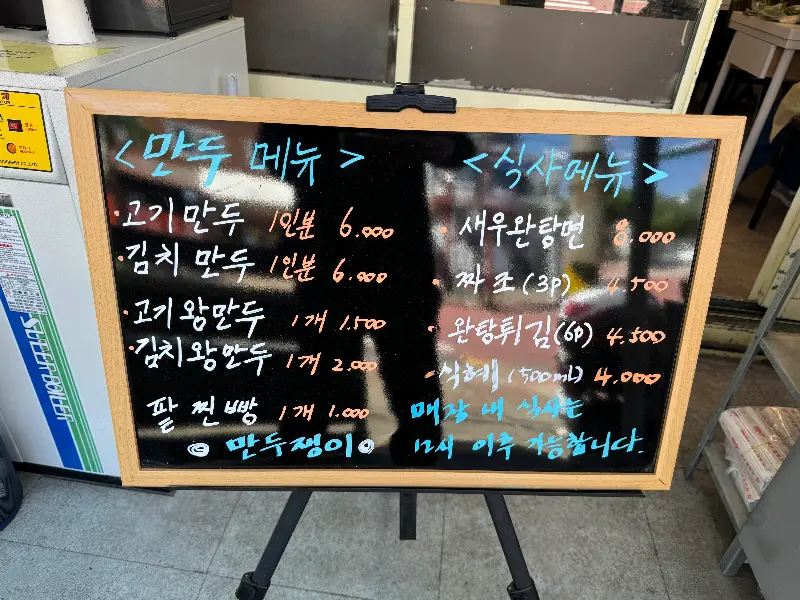 <만두 메뉴>
·고기만두 1인분 6.000
·김치만두 1인분 6.000
·고기왕만두 1개 1.500
·김치왕만두 1개 2.000
팥찐빵 1개 1.000
만두쟁이
<식사메뉴>
· 새우완탕면 8.000
· 짜조(3p) 4.500
· 완탕튀김(6p) 4.500
· 식혜(500ml) 4.000
매장 내 식사는
12시 이후 가능합니다.
SELECT BOILER